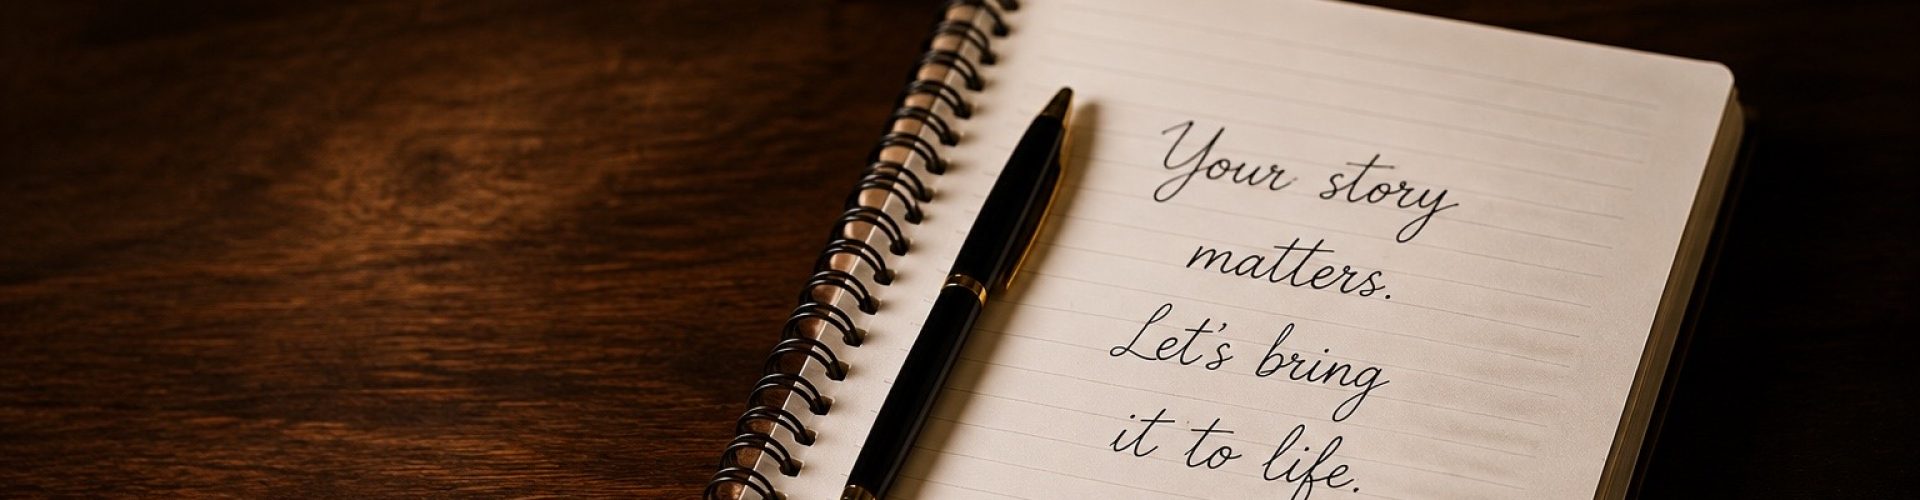 Your story
matters.
Let's bring
it to life.